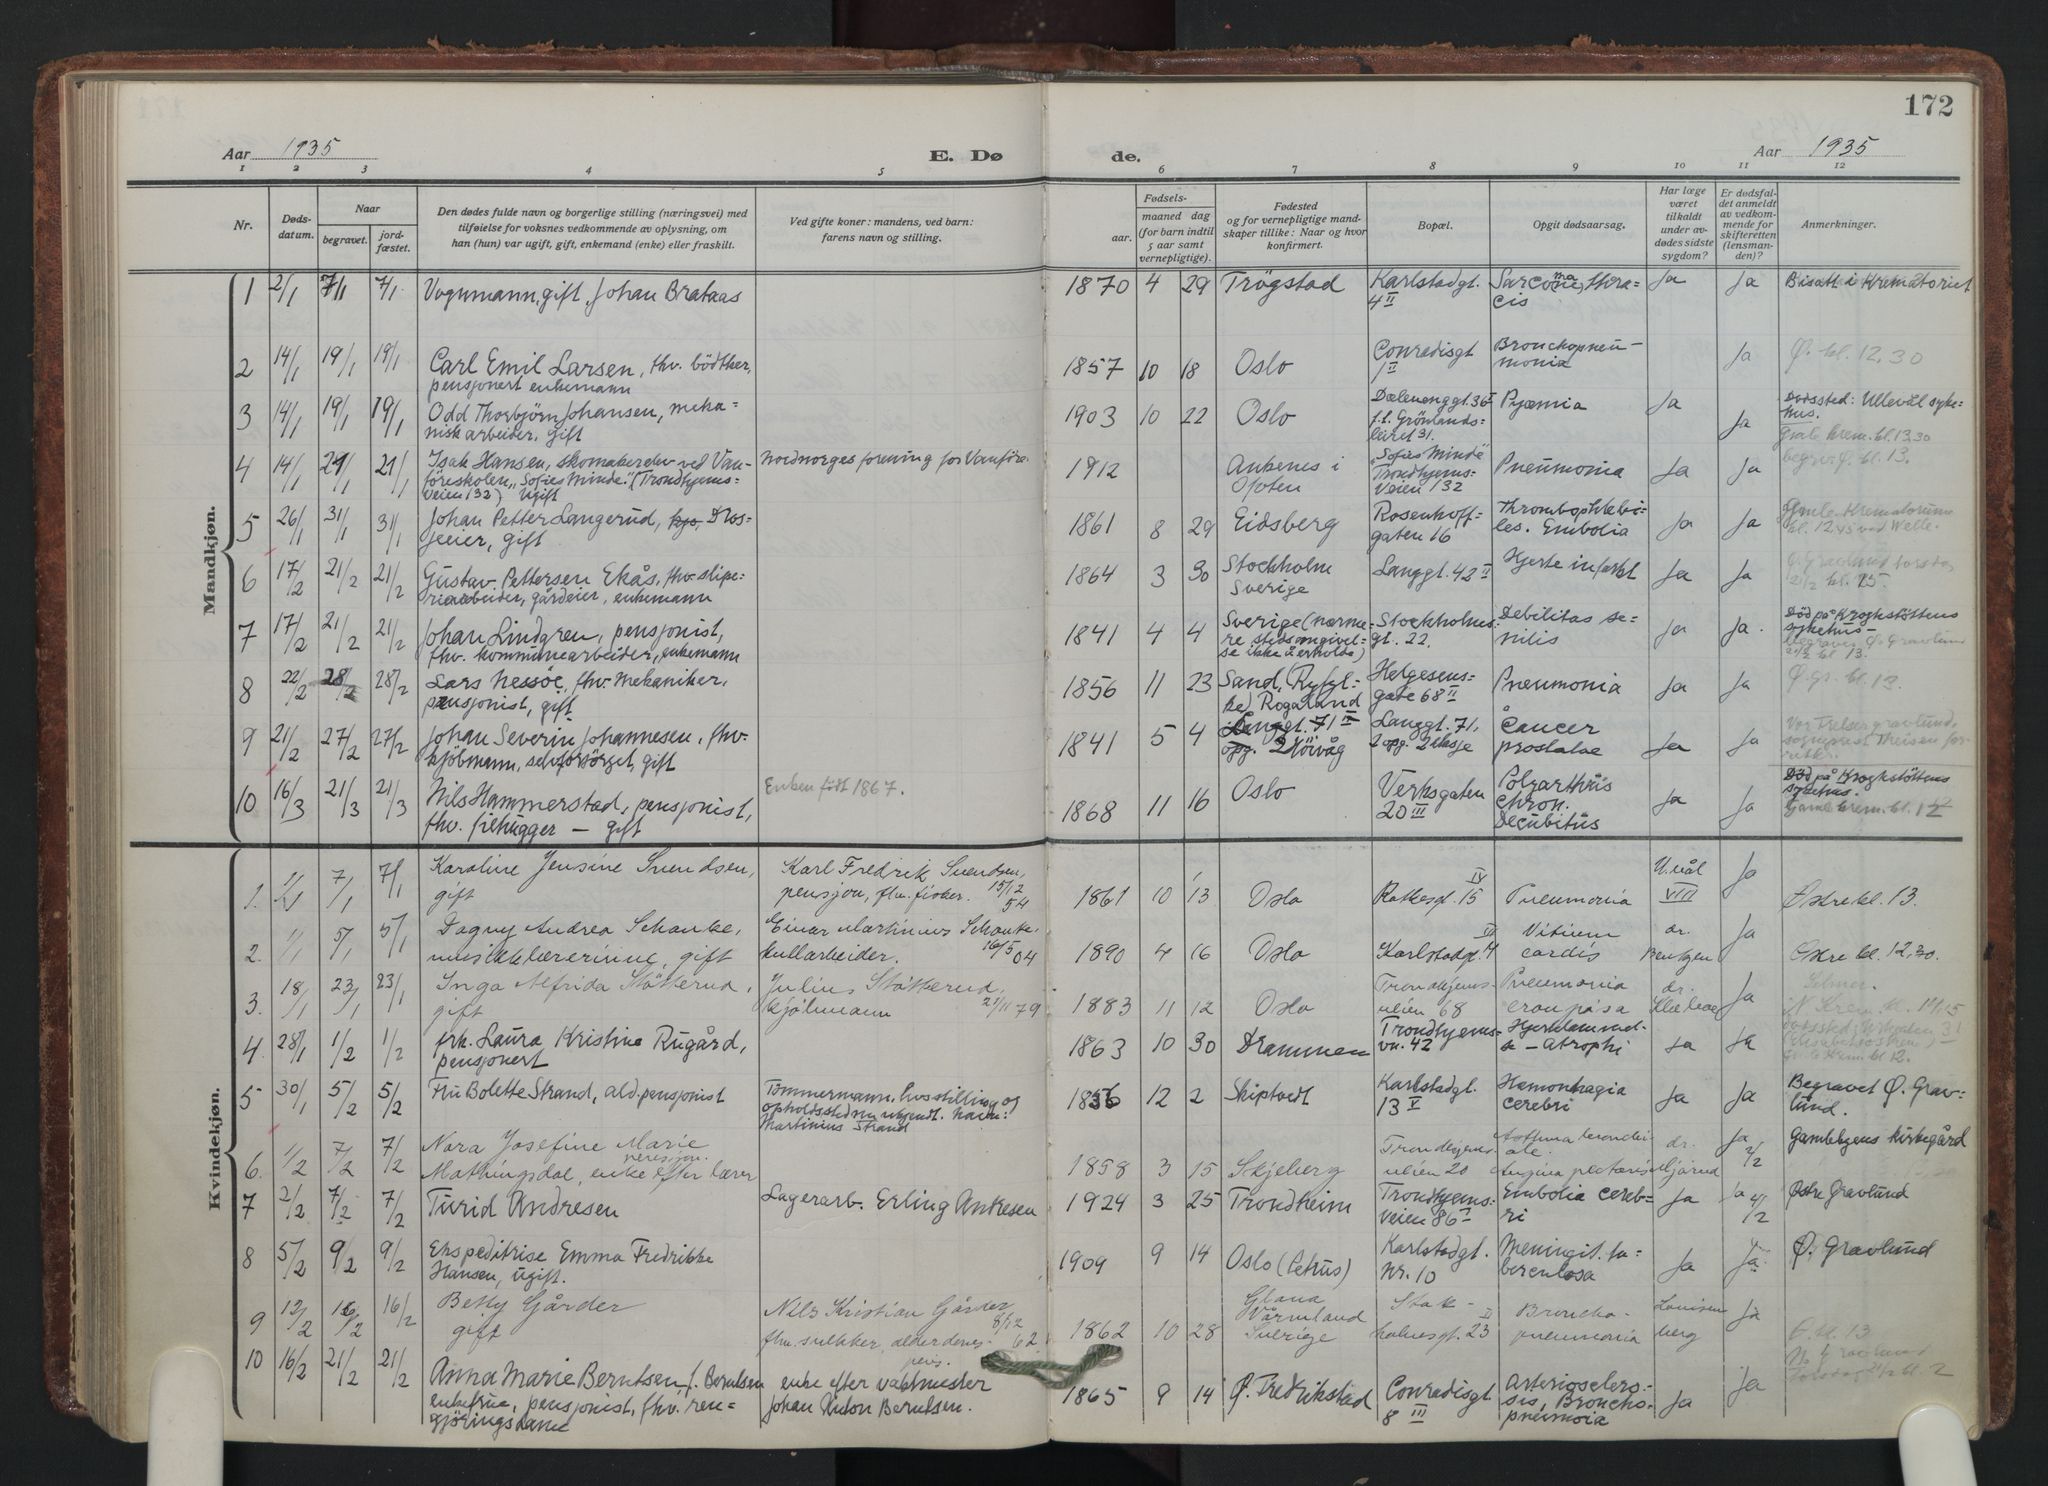 172
Aar 1935
E. Dø
de.
Aar 1935
1 2 3 4 5 6 7 8 9 10 11 12
Nr.
Døds-
datum.
Naar
begravet.
jord-
fæstet.
Den dødes fulde navn og borgerlige stilling (næringsvei) med
tilføielse for voksnes vedkommende av oplysning, om
han (hun) var ugift, gift, enkemand (enke) eller fraskilt.
Ved gifte koner: mandens, ved barn:
farens navn og stilling.
Fødsels-
aar.
maaned dag
(for barn indtil
5 aar samt
vernepligtige).
Fødested
og for vernepligtige mand-
skaper tillike: Naar og hvor
konfirmert.
Bopæl.
Opgit dødsaarsag.
Har læge
været
tilkaldt
under av-
dødes sidste
sygdom?
Er dødsfal-
det anmeldt
av vedkom-
mende for
skifteretten
(lensman-
den)?
Anmerkninger.
Mandkjøn.
1 2/1 7/1 7/1 Vognmann, gift, Johan Brataas 1870 4 29 Trögstad Karlstadgt. 4 II Sarcoma thora-
cis Ja Ja Bisatt i Krematoriet
2 14/1 19/1 19/1 Carl Emil Larsen, fhv. bödtker,
pensjonert enkemann 1857 10 18 Oslo Conradisgt 1 II Bronchopneu-
monia Ja Ø. kl. 12,30
3 14/1 19/1 19/1 Odd Thorbjörn Johansen, meka-
nisk arbeider, gift 1903 10 22 Oslo Dælenenggt. 36 I
f.t. Grönlands-
leiret 31. Pyæmia Ja Ja Dødssted: Ullevål syke-
hus.
Gmle krem. kl. 13.30
4 14/1 21/1 21/1 Isak Hansen, skomakerelev ved Van-
föreskolen "Sofies Minde." (Trondhjems-
veien 132) Ugift Nordnorges forening for Vanföre 1912 Ankenes i
Ofoten "Sofies Minde"
Trondhjems-
veien 132 Pneumonia Ja Ja begrv. Ø. kl. 13.
5 26/1 31/1 31/1 Johan Petter Langerud, Dros-
jeeier, gift 1861 8 29 Eidsberg Rosenhoff-
gaten 16 Thrombophlebi-
tes. Embolia Ja Ja Gmle Krematorium
kl. 12 45 ved Welle.
6 17/2 21/2 21/2 Gustav Pettersen Ekås, fhv. slipe-
riarbeider, gårdeier, enkemann 1864 3 30 Stockholm
Sverige Langgt. 42 II Hjerteinfarkt Ja Ja Ø. Gravlund torsdag
21/2 kl. 15.
7 17/2 21/2 21/2 Johan Lindgren, pensjonist,
fhv. kommunearbeider, enkemann 1841 4 4 Sverige (nærme-
re stedsangivel-
se ikke å erholde) Stockholms-
gt. 22. Debilitas se-
nilis Ja Ja Död på Krogkstöttens
sykehus -
begraves Ø. Gravlund
21/2 kl 13.
8 22/2 28/2 28/2 Lars Nessöe, fhv. mekaniker,
pensjonist, gift 1856 11 23 Sand, Ryfyl-
ke) Rogaland Helgesens-
gate 68 II Pneumonia Ja Ja Ø. Gr. kl. 13.
9 21/2 27/2 27/2 Johan Severin Johannesen, fhv.
kjöbmann, selvforsörget, gift 1841 5 4 Langgt. 71 III
opg. 2 Höivåg Langgt. 71,
2 opg. 2 etasje Cancer
prostatae Ja Ja Vor Frelser gravlund,
sogneprest Theisen for-
rettet.
10 16/3 21/3 21/3 Nils Hammerstad, pensjonist,
fhv. filehugger - gift Enken født 1867. 1868 11 16 Oslo Verksgaten
20 III Polyarthritis
chron.
Decubitus Ja Ja Död på Krogkstöttens
sykehus.
Gamle krem. kl. 12
Kvindekjøn.
1. 1/1 7/1 7/1 Karoline Jensine Svendsen,
gift Karl Fredrik Svendsen,
pensjon, fhv. fisker. 15/12
54 1861 10 13 Oslo Ratkesgt. 15 IV Pneumonia U.vål
VIII Ja Østre kl. 13.
2. 1/1 5/1 5/1 Dagny Andrea Schanke,
musikklærerinne, gift Einar Martinius Schanke
kullarbeider. 16/5 04 1890 4 16 Oslo Karlstadgt. 4 Vitium
cordis dr.
Bentzen Ja Østre kl. 12,30.
3. 18/1 23/1 23/1 Inga Alfrida Stötterud,
gift Julius Stötterud,
kjöbmann 21/11 79 1883 11 12 Oslo Trondhjems-
veien 68 Pneumonia
crouposa dr. Ja
4. 28/1 1/2 1/2 frk. Laura Kristine Rugård,
pensjonert 1863 10 30 Drammen Trondhjems-
vn. 42 Ja Ja
5 30/1 5/2 5/2 Fru Bolette Strand, ald.pensjonist Tömmermann, livsstilling og
opholdssted nu ukjendt. navn:
Martinius Strand 1856 12 2 Skiptvedt Karlstadgt.
13 I Hæmorrhagia
cerebri Ja Ja Begravet Ø. Grav-
lund.
6. 1/2 7/2 7/2 Nora Josefine Marie
Mathingsdal, pensjon. enke efter lærer 1858 3 15 Skjeberg Trondhjems-
veien 20 Asthma bronchi-
ale.
Angina pectoris dr.
Mjörud Ja 2/2 Gamlebyens kirkegård
7 2/2 7/2 7/2 Turid Andresen Lagerarb. Erling Andresen 1924 3 25 Trondheim Trondhjems-
veien 86 I Embolia cereb-
ri Ja Ja 4/2 Østre Gravlund
8 5/2 9/2 9/2 Ekspeditrise Emma Fredrikke
Hansen, ugift. 1909 9 14 Oslo (Petrus) Karlstadgt.
Nr. 10 Meningit. tu-
berculosa Ja Ja Ø. Gravlund
9 12/2 16/2 16/2 Betty Gårder
gift Nils Kristian Gårder 8/12 62
fhv. snekker, alderdoms-
pens. 1862 10 28 Glava
Värmland
Sverige Stok-
holmsgt. 23 II Broncho-
pneumonia Louisen
berg Ja Ø. kl. 13
10 16/2 21/2 21/2 Anna Marie Berntsen, f. Berntsen
enkefrue, pensjonist, fhv. ren-
gjöringsdame enke efter vaktmester
Johan Anton Berntsen. 1865 9 14 Ø. Fredrikstad Conradisgt
8 III Arterioscelero-
sis, Broncho-
pneumoia Ja Ja